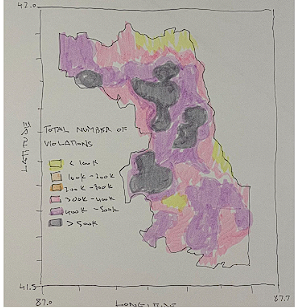 42.0
LATITUDE
TOTAL NUMBER OF
VIOLATIONS
< 100K
100K - 200K
200K - 300K
300K - 400K
400K - 500K
> 500K
41.5
87.0
87.7
LONGITUDE